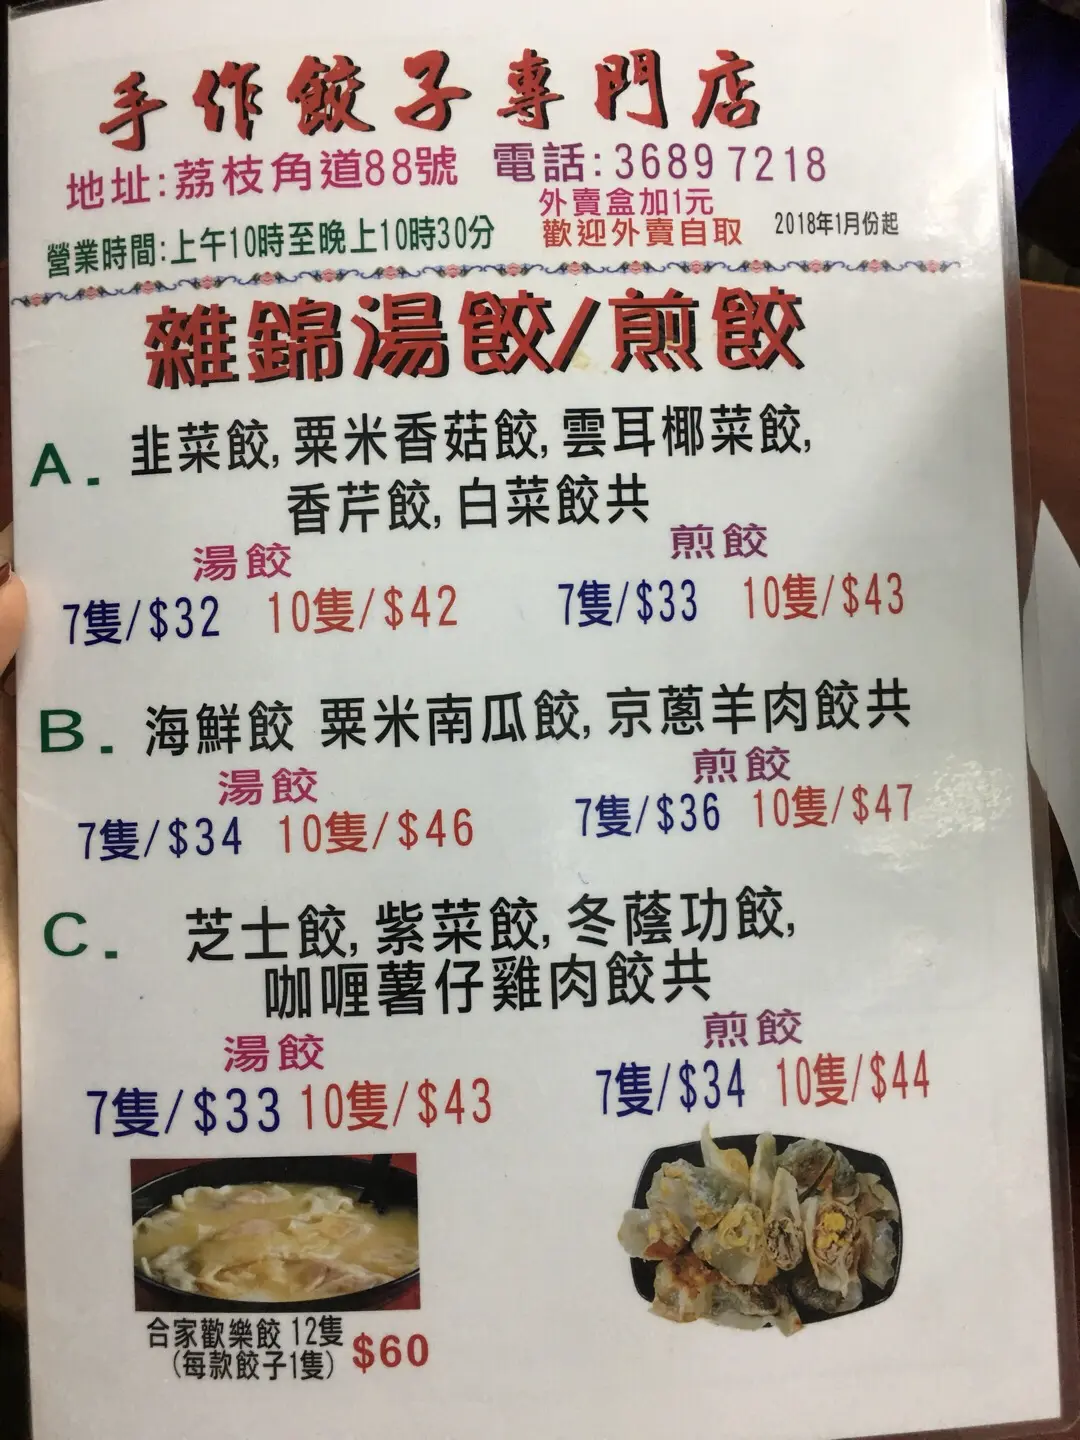 手作餃子專門店
地址:荔枝角道88號 電話:36897218
外賣盒加1元
營業時間:上午10時至晚上10時30分 歡迎外賣自取 2018年1月份起
雜錦湯餃/煎餃
A. 韭菜餃, 粟米香菇餃, 雲耳椰菜餃,
香芹餃, 白菜餃共
湯餃 煎餃
7隻/$32 10隻/$42 7隻/$33 10隻/$43
B. 海鮮餃 粟米南瓜餃, 京蔥羊肉餃共
湯餃 煎餃
7隻/$34 10隻/$46 7隻/$36 10隻/$47
C. 芝士餃, 紫菜餃, 冬蔭功餃,
咖喱薯仔雞肉餃共
湯餃 煎餃
7隻/$33 10隻/$43 7隻/$34 10隻/$44
合家歡樂餃 12隻
(每款餃子1隻) $60